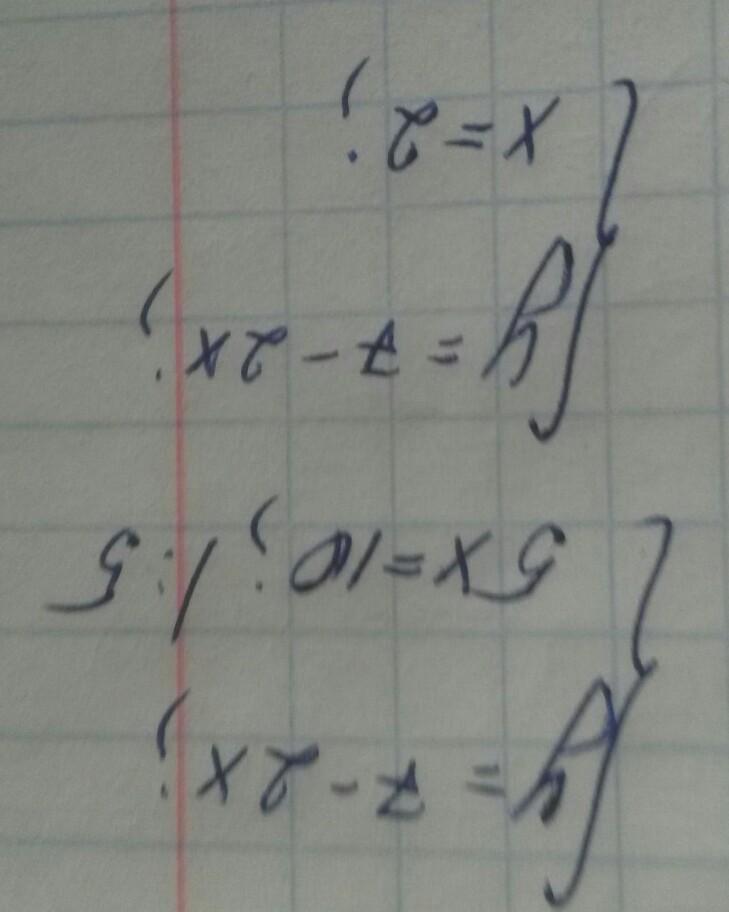 { y = 7 - 2x;
5x = 10; | : 5
{ y = 7 - 2x;
x = 2;